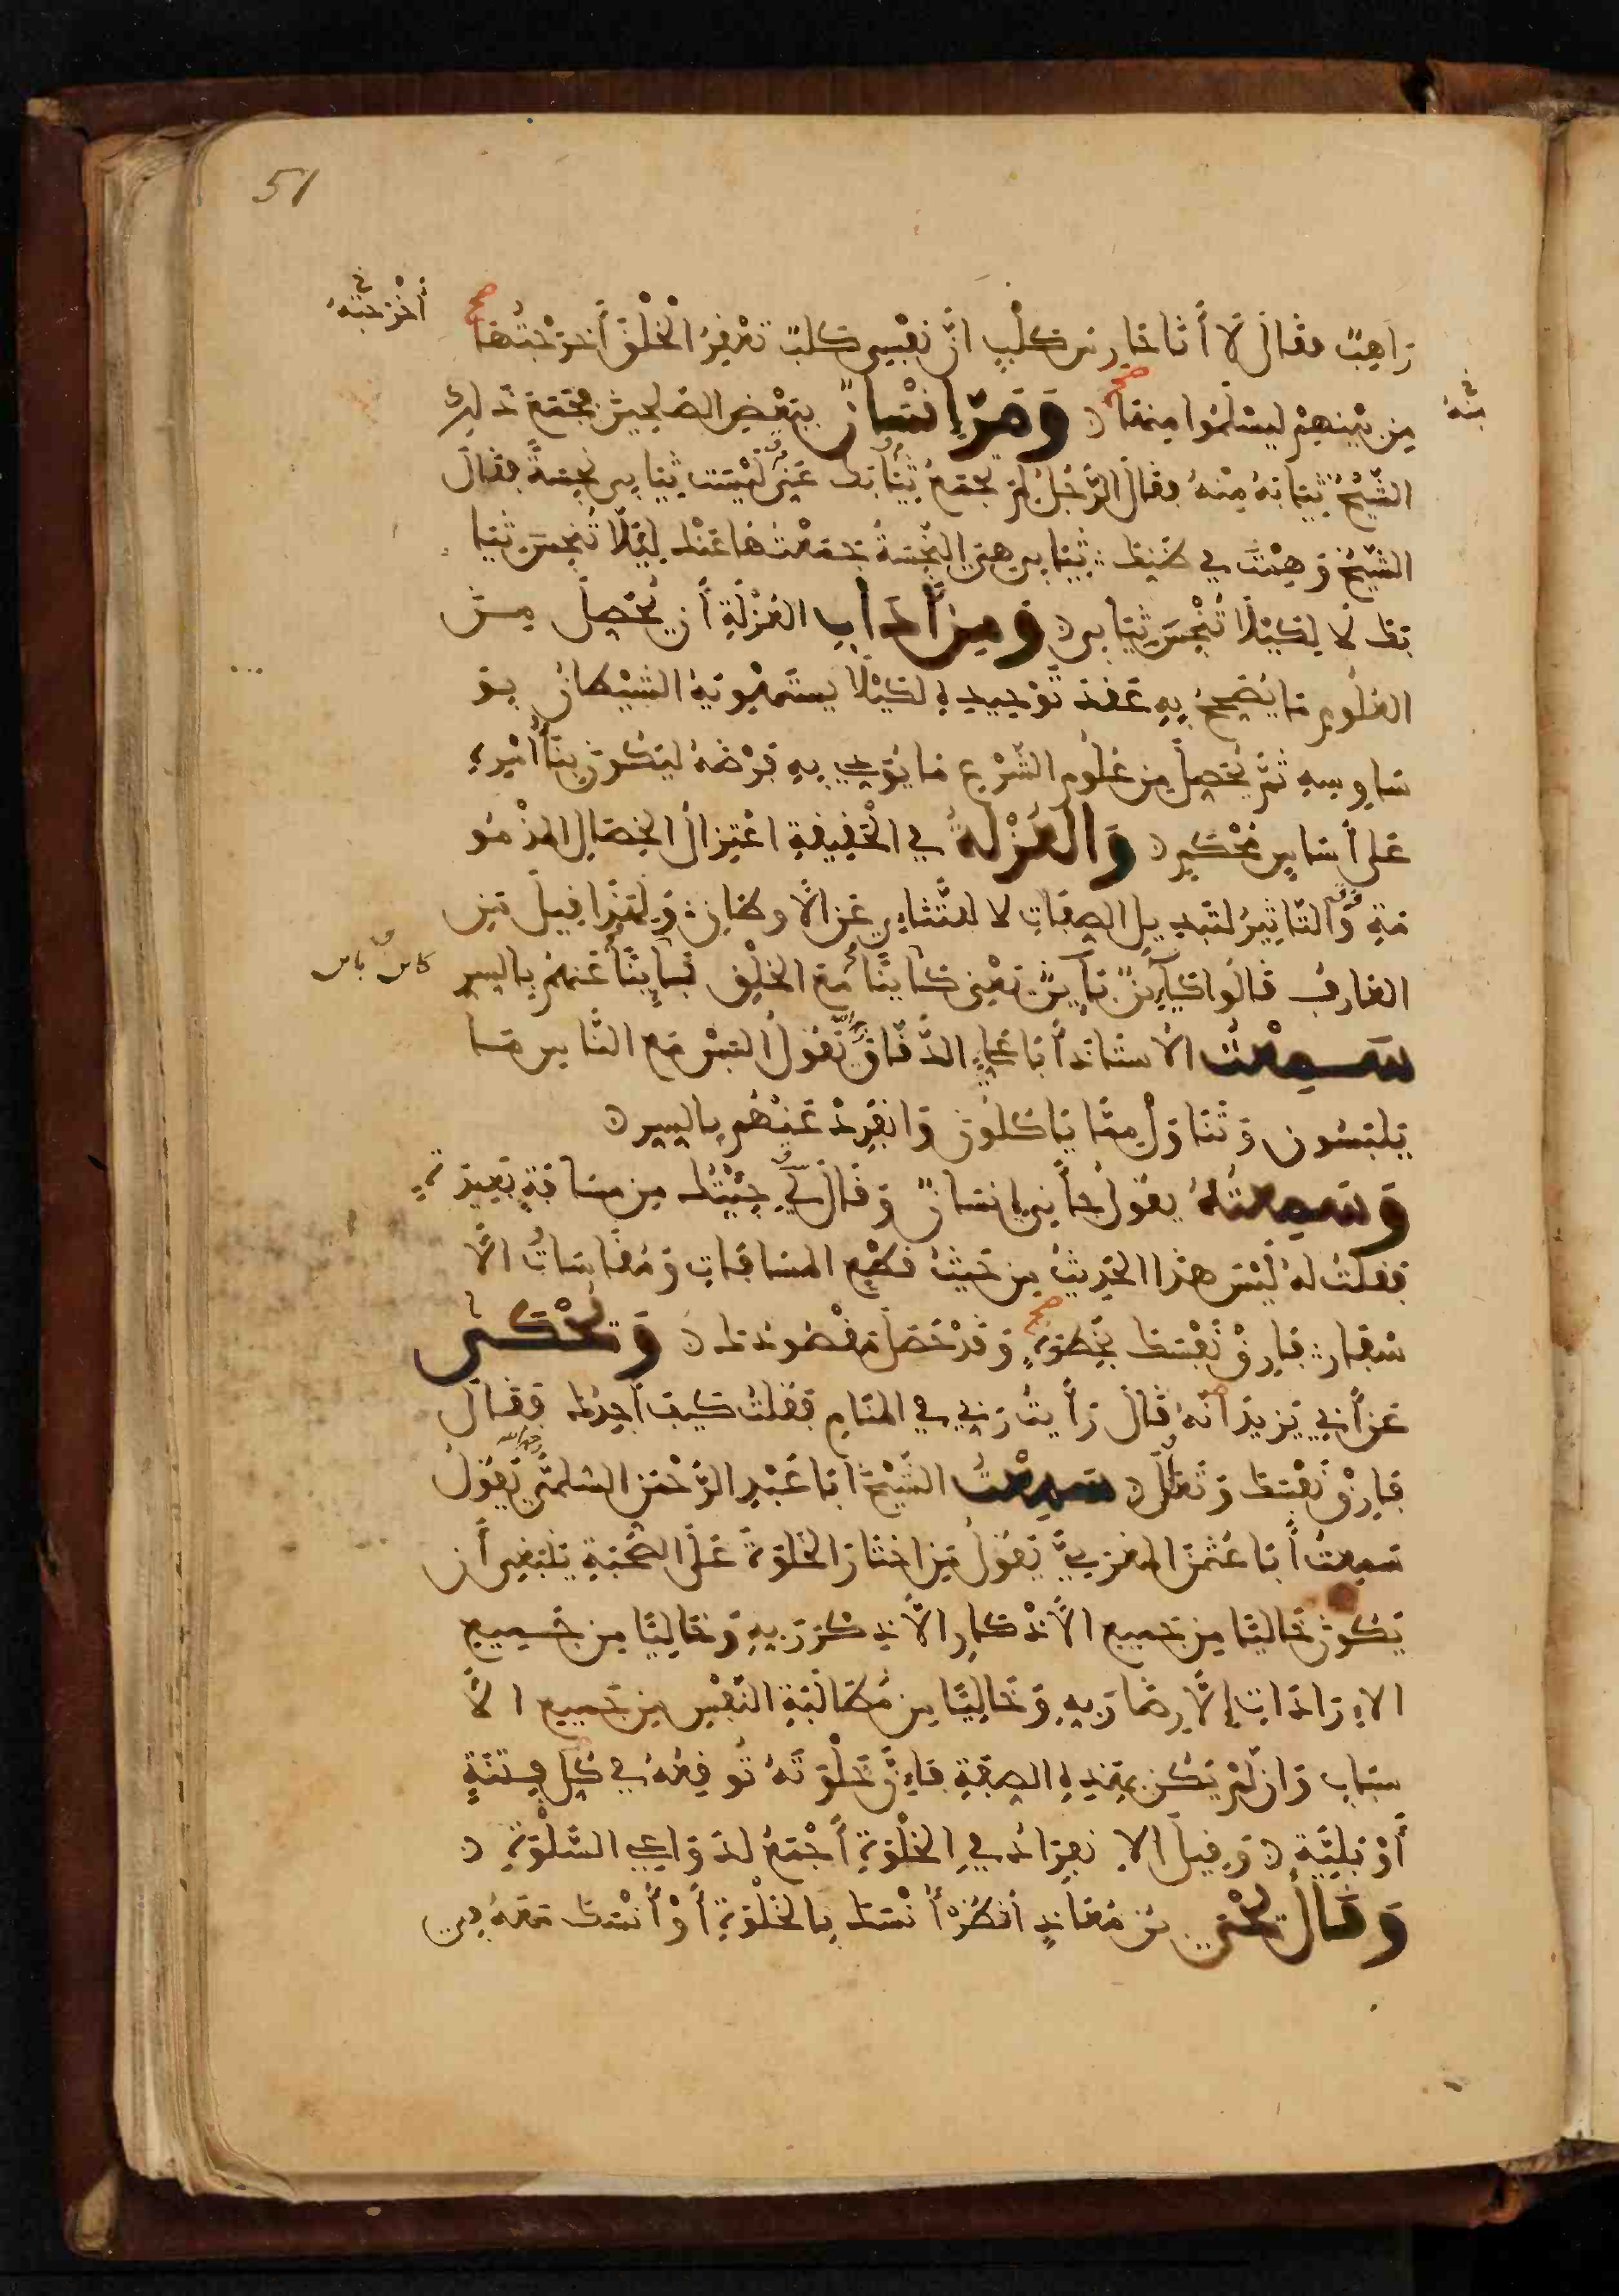 51
رَاهِبٌ فقَالَ لَا أنَا حَارِسُ كَلْبٍ انَّ نَفْسِي كَلبٌ تعْقِرُ الْخَلْقَ أَخرَجْتُهَا صح
أخْرَجتهُ
مِن بَيْنِهِمْ لِيَسْلَمُوا مِنهَا صح وَمَرَّ إنْسَانٌ بِبَعْضِ الصَالِحِينَ فجَمَعَ ذَلِكَ
مِنْهُ
الشَّيْخُ ثِيَابَهُ مِنْهُ فقَالَ الرَّجُلُ لِمَ تجمَعُ ثِيَابَكَ عَنِّي لَيْسَت ثِيَابِي نَجِسَةً فقَالَ
الشَّيْخُ وَهِمْتَ في ظَنِّكَ ثِيَابِي هِيَ النَّجِسَةُ جَمَعْتُهَا عَنْكَ لِئَلَّا تُنَجِّسَ ثِيَا
بَكَ لَا لِكَيْلَا تُنَجِّسَ ثِيَابِي وَمِنْ آدَابِ العُزْلَةِ أن يُحَصِّلَ مِنَ
العُلُومِ مَا يُصَحِّحُ بِهِ عَقْدَ تَوْحِيدِهِ لِكَيْلَا يَسْتَهْوِيَهُ الشَّيْطَانُ بِوَ
سَاوِسِهِ ثمَّ يُحَصِّلَ مِن عُلُومِ الشَّرْعِ مَا يُؤدِّي بِهِ فَرْضَهُ لِيَكُونَ بِنَاءُ امْرِهِ
عَلَى أسَاسٍ مُحْكَمٍ وَالعُزْلَةُ في الْحَقِيقَةِ اعْتِزَالُ الخِصَالِ المَذْمُو
مَةِ وَالتَّاثِيرُ لتَبدِيلِ الصِفَاتِ لا للتَّنَاءِي عَنِ الأَوطَانِ وَلِهَذَا قِيلَ مَنِ
العَارِفُ قَالُوا كَائِنٌ بَائِنٌ يَعْنِي كَائِنًا مَعَ الخَلْقِ بَايِنًا عَنهُمْ بِالسِرِ
كاين باين
سَمِعْتُ الأسْتَاذَ أبَا عَلِيٍ الدَّقَّاقَ يَقُولُ الْبَسْ مَعَ النَّاسِ مَا
يَلبَسُونَ وَتَنَاوَلْ مِمَّا يَاكُلُونَ وَانفَرِدْ عَنْهُم بِالسِرِ
وَسَمِعتُهُ يقُولُ جَاءَنِي إنسَانٌ وَقَالَ لِي جِئْتُكَ مِن مَسَافَةٍ بَعِيدَةٍ
فقُلتُ لَهُ لَيْسَ هَذَا الحَدِيثُ مِن حَيْثُ قَطْعِ المَسَافَاتِ وَمُقَاسَاتُ الأَ
سْفَارِ فَارِقْ نَفْسَكَ بِخُطْوَةٍ صح وَقَدْ حَصَلَ مَقْصُودُكَ وَيُحْكَى
عَن أَبِي يَزِيدَ أنَّهُ قَالَ رَأَيتُ رَبِّي فِي المَنَامِ فقُلتُ كَيْفَ أَجِدُكَ فَقَالَ
فَارِقْ نَفْسَكَ وَتَعَالَ سَمِعْتُ الشَّيْخَ أبَا عَبْدِ الرَّحْمَنِ السُّلَمِيَّ رحمه الله يَقُولُ
سَمِعتُ أبَا عُثمَنَ المَغرِبِيَّ يَقُولُ مَنِ اختَارَ الخَلوَةَ عَلَى الصُّحْبَةِ يَنْبَغِي أَن
يَكُونَ خَالِيًا مِن جَمِيعِ الأَذْكَارِ الَّا ذِكْرَ رَبِهِ وَخَالِيًا مِن جَمِيعِ
الاِرَادَاتِ إلَّا رِضَا رَبِهِ وَخَالِيًا مِن مُطَالَبَةِ النَّفْسِ مِن جَمِيعِ الأَ
سْبَابِ وَان لَمْ يَكُن بِهَذِهِ الصِفَةِ فَإنَّ خَلْوَتَهُ تُوقِعُهُ فِي كُلِ فِتْنَةٍ
أَوْ بَلِيَّةٍ وَقِيلَ الاِنفِرَادُ فِي الخَلْوَةِ أَجْمَعُ لدَوَاعِي السَّلْوَةِ
وَقَالَ يَحْيَى بْنُ مُعَاذٍ انظُرْ أُنْسَكَ بِالخَلْوَةِ أوْ أُنْسَكَ مَعَهُ فِي